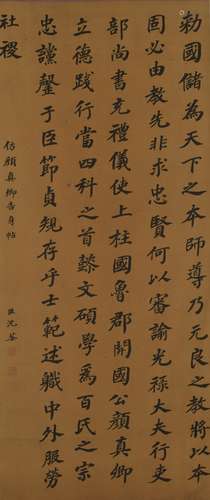 勅國儲為天下之本師導乃元良之教將以本
固必由教先非求忠賢何以審諭光禄大夫行吏
部尚書充禮儀使上柱國魯郡開國公顏真卿
立德踐行當四科之首懿文碩學為百氏之宗
忠讜罄于臣節貞規存乎士範述職中外服勞
社稷
仿顏真卿告身帖
沈荃